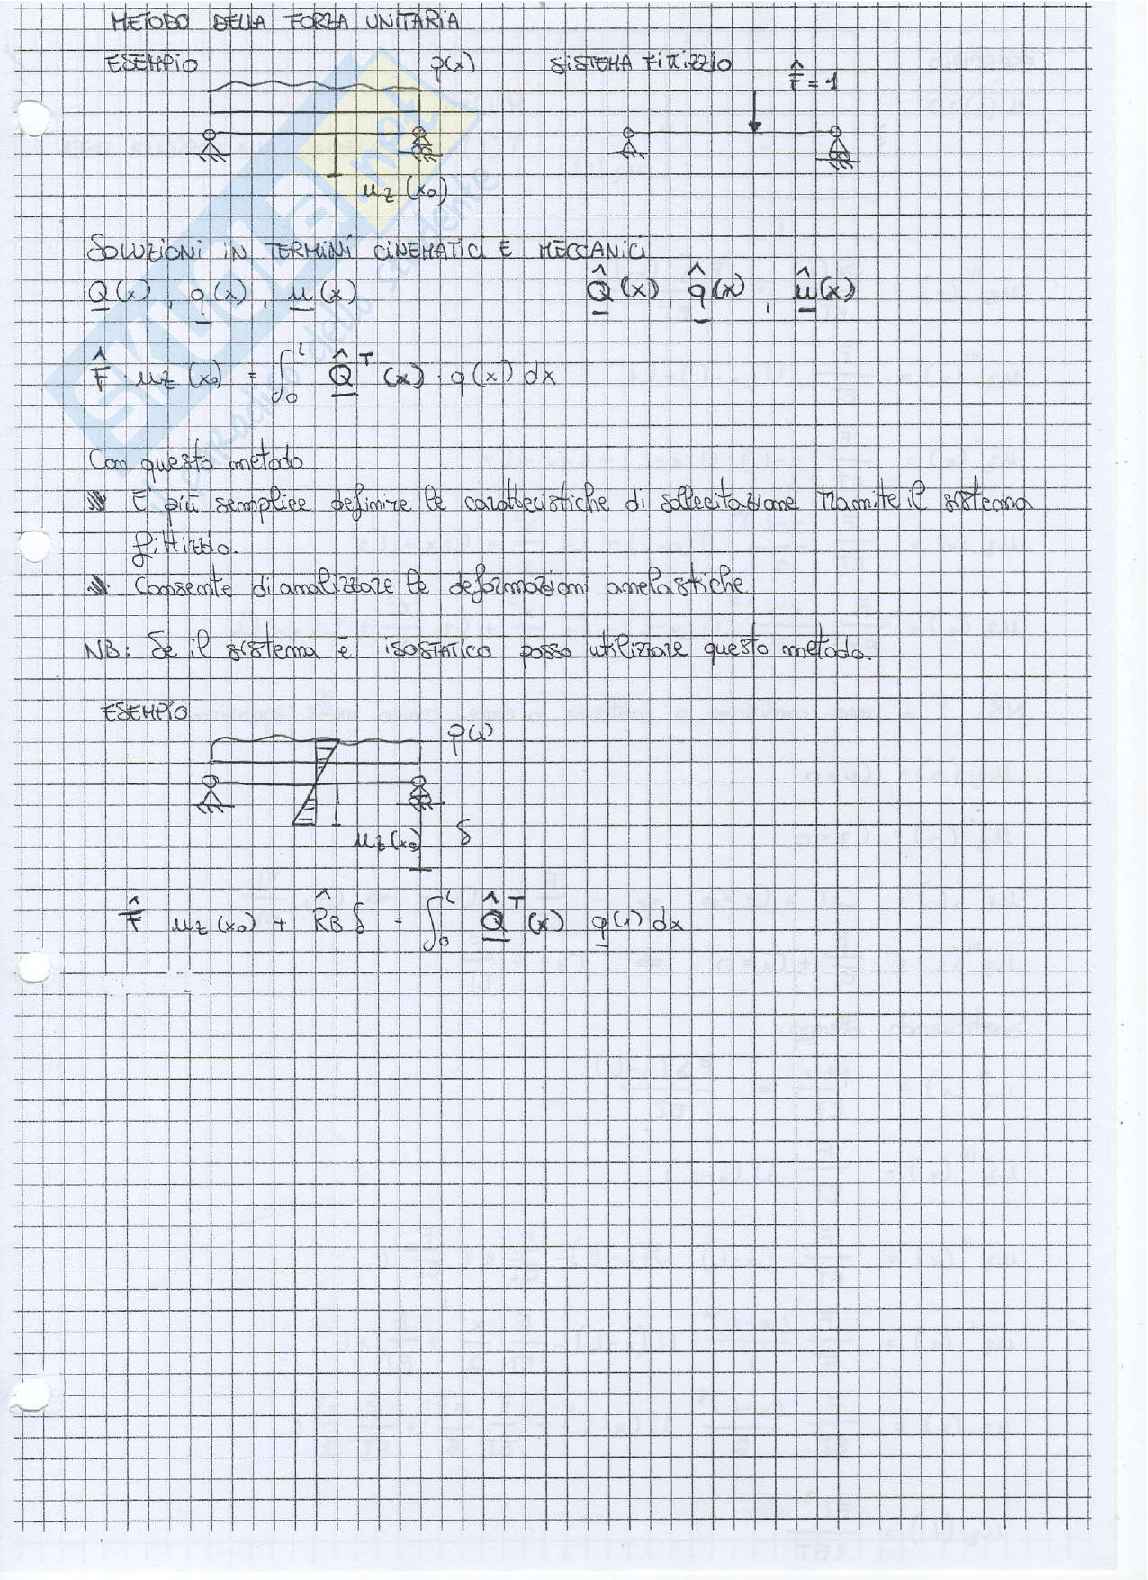 METODO DELLA FORZA UNITARIA
ESEMPIO p(x) SISTEMA FITTIZIO F̂ = 1
u_z (x₀)
SOLUZIONI IN TERMINI CINEMATICI E MECCANICI
Q(x), q(x), u(x) Q̂(x) q̂(x), û(x)
F̂ · u_z (x₀) = ∫₀ᴸ Q̂ᵀ (x) · q(x) dx
Con questo metodo
E' più semplice definire le caratteristiche di sollecitazione tramite il sistema
fittizio.
Consente di analizzare le deformazioni anelastiche.
NB: Se il sistema è ISOSTATICO posso utilizzare questo metodo.
ESEMPIO
p(x)
u_z(x₀) δ
F̂ u_z(x₀) + R̂_B δ = ∫₀ᴸ Q̂ᵀ(x) q(x) dx